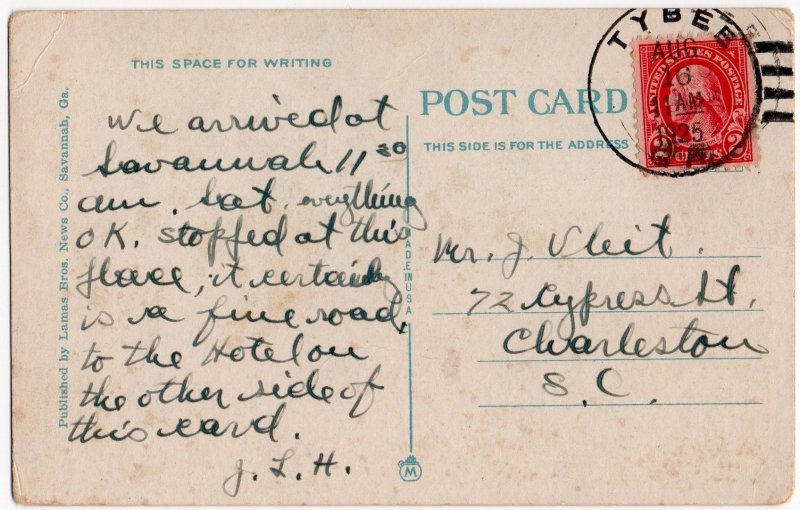 THIS SPACE FOR WRITING
we arrived at
Savannah 11 30
am. Sat. everything
OK. stopped at this
place, it certainly
is a fine road,
to the Hotel on
the other side of
this card.
J. L. H.
Published by Lamas Bros. News Co., Savannah, Ga.
MADE IN U.S.A.
M
POST CARD
THIS SIDE IS FOR THE ADDRESS
TYBEE
AUG
6
AM
1925
GA.
UNITED STATES POSTAGE
2 CENTS 2
Mr. J. Vleit.
72 Cypress St,
Charleston
S. C.